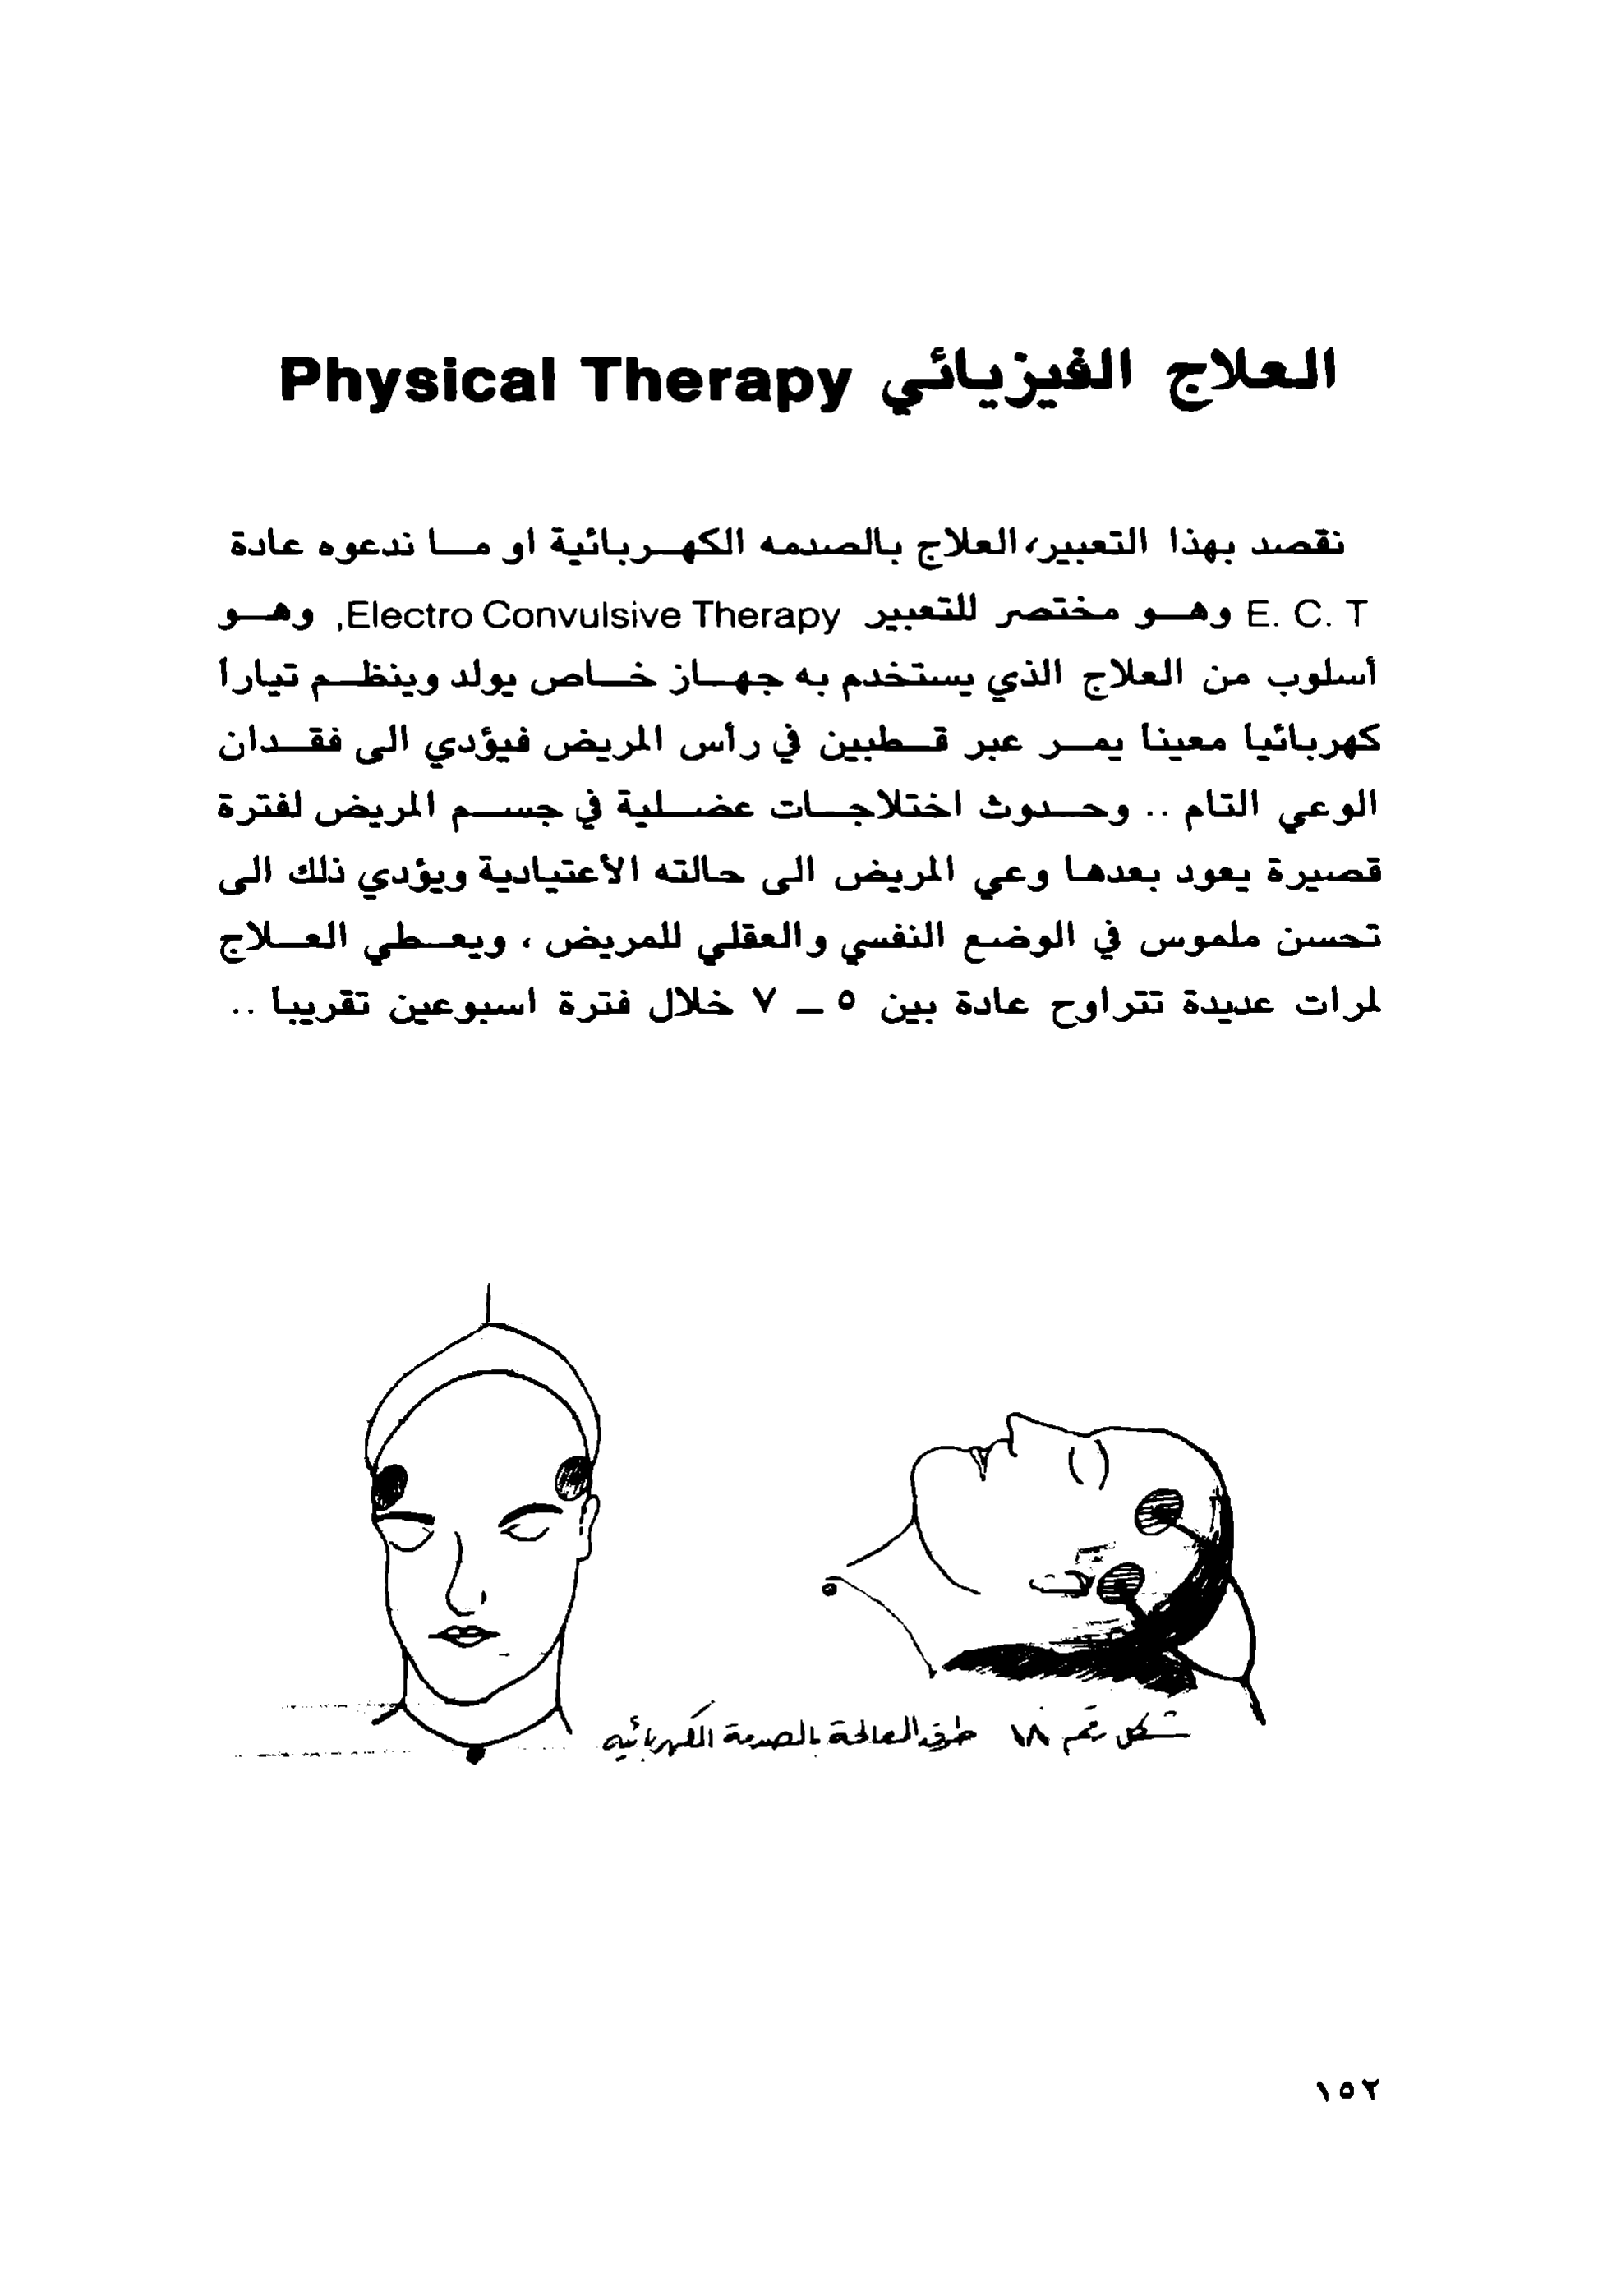 العلاج الفيزيائي Physical Therapy
نقصد بهذا التعبير، العلاج بالصدمه الكهربائية او ما ندعوه عادة
E. C. T وهو مختصر للتعبير Electro Convulsive Therapy, وهو
أسلوب من العلاج الذي يستخدم به جهاز خاص يولد وينظم تيارا
كهربائيا معينا يمر عبر قطبين في رأس المريض فيؤدي الى فقدان
الوعي التام .. وحدوث اختلاجات عضلية في جسم المريض لفترة
قصيرة يعود بعدها وعي المريض الى حالته الأعتيادية ويؤدي ذلك الى
تحسن ملموس في الوضع النفسي والعقلي للمريض ، ويعطي العلاج
لمرات عديدة تتراوح عادة بين ٥ – ٧ خلال فترة اسبوعين تقريبا ..
شكل رقم ١٨ طرق المعالجة بالصدمة الكهربائيه
١٥٢